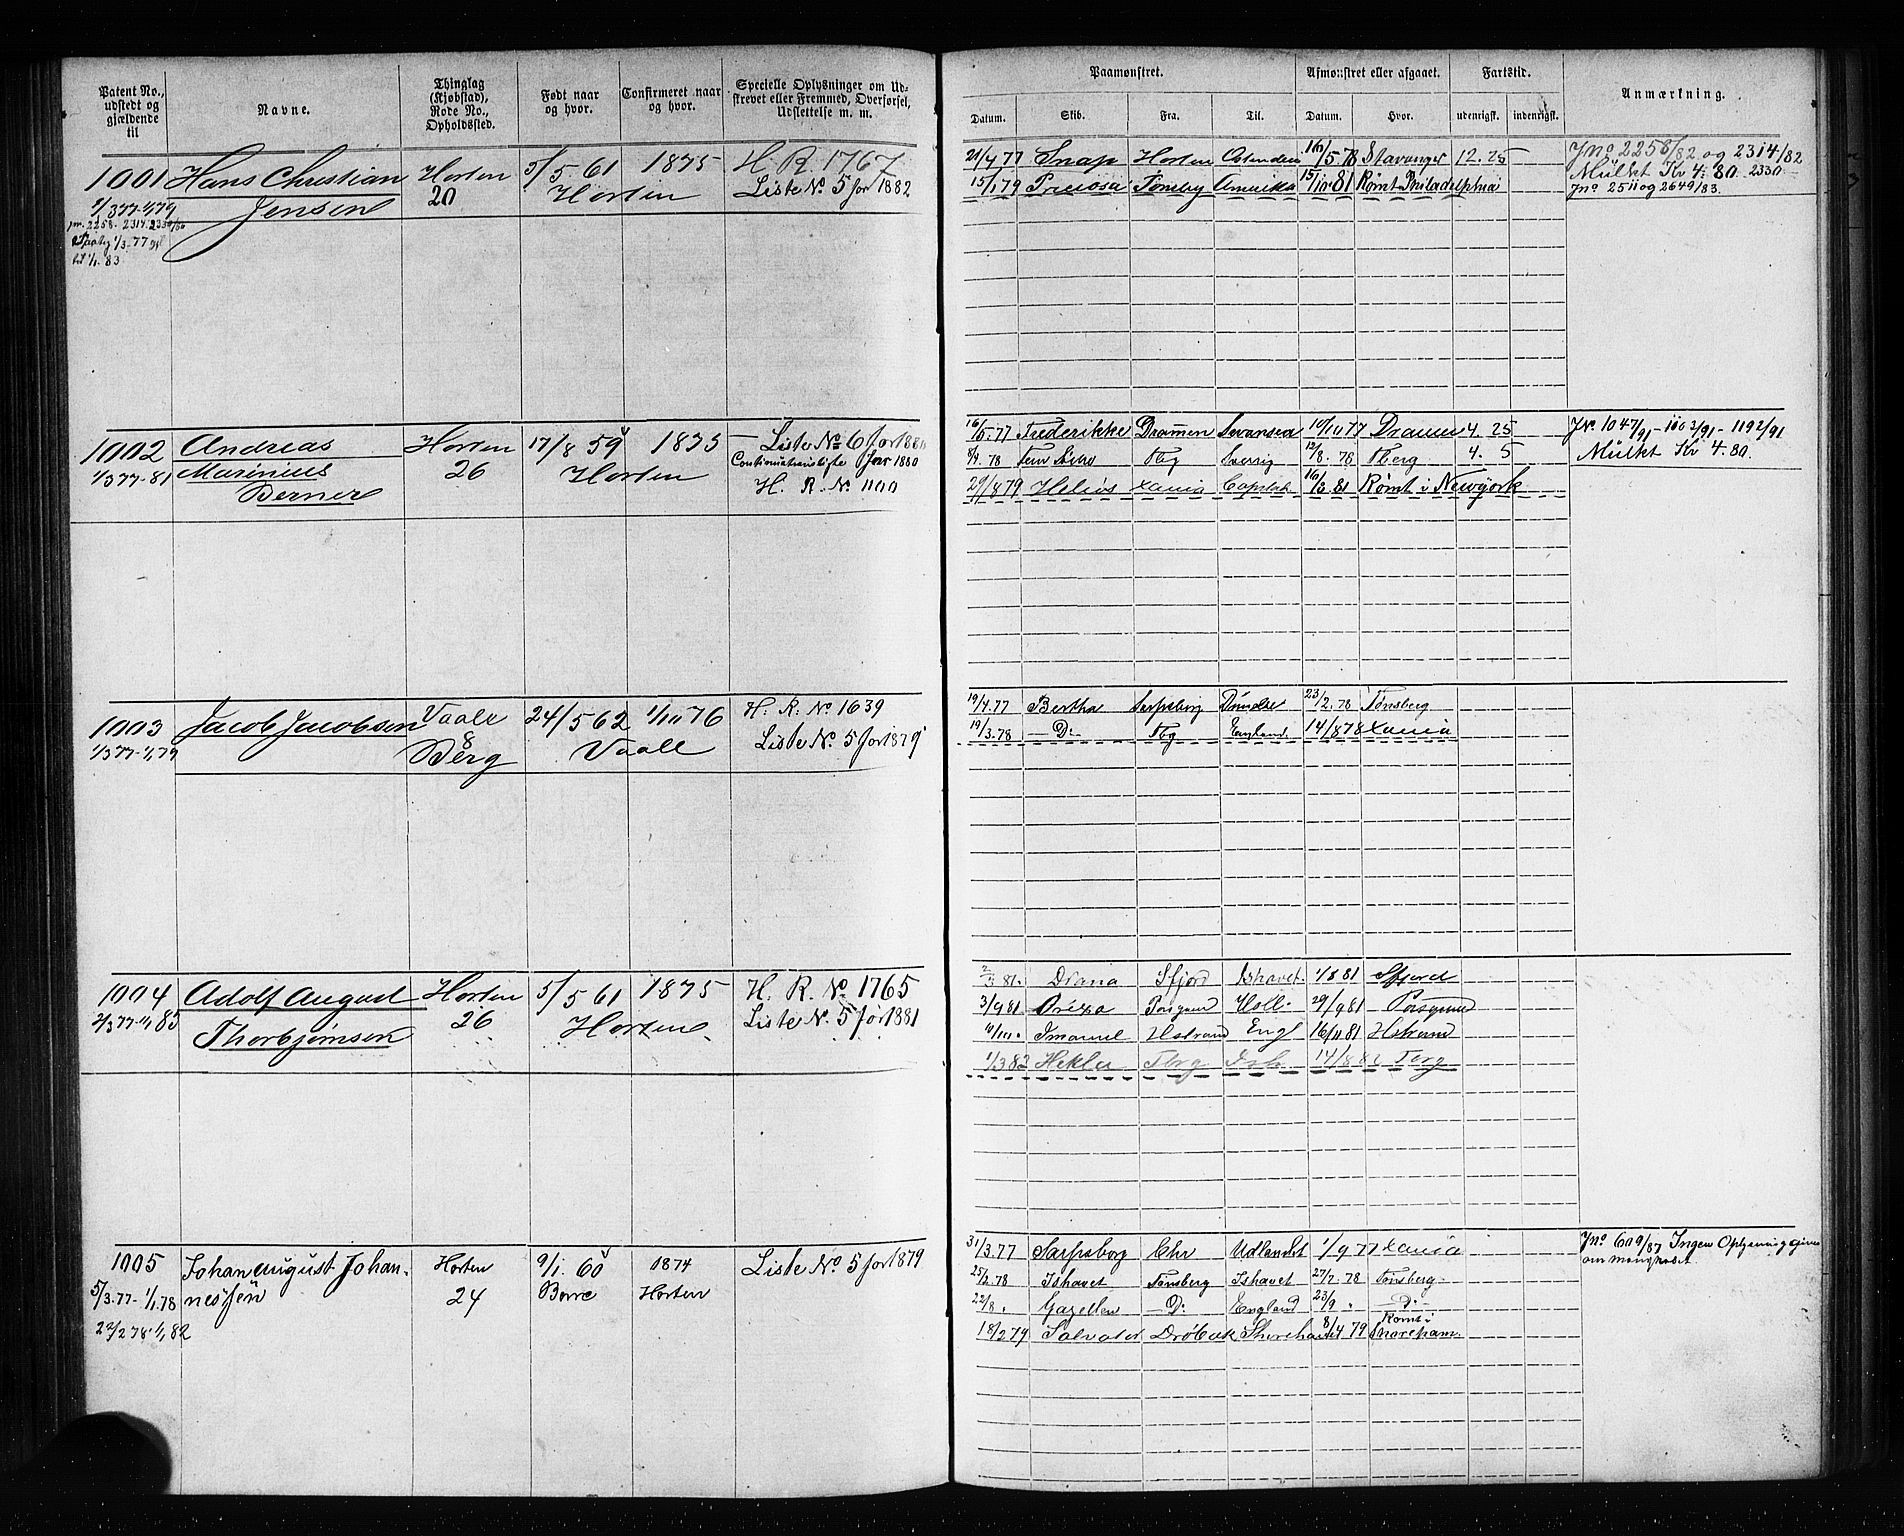 Patent No., udstedt og gjældende til
Navne.
Thinglag (Kjøbstad), Rode No., Opholdssted.
Født naar og hvor.
Confirmeret naar og hvor.
Specielle Oplysninger om Udskrevet eller Fremmed, Overførsel, Udslettelse m. m.
Paamønstret.
Afmønstret eller afgaaet.
Fartstid.
Anmærkning.
Datum. Skib. Fra. Til. Datum. Hvor. udenrigsk. indenrigsk.
1001 Hans Christian Horten 5/5 61 1875 H. R. 1767
1/3 77-1/1 79 Jensen 20 Horten Liste No 5 for 1882
21/4 77 Snap Horten Ostende 16/5 78 Stavanger 12. 25
15/1 79 Preciosa Tønsby Amerika 15/10 81 Rømt Philadelphia
Jno 2258/82 og 2314/82
Mulkt Kr 4. 80. 2330
Jno 2511 og 2649/83.
1002 Andreas Horten 17/8 59 1875 Liste No 6 for 1880
1/3 77-81 Marinius 26 Horten
Berner H. R. No. 1100
16/5. 77 Frederikke Drammen Swansea 10/10 77 Drammen 4. 25
8/4. 78 Tbg Sverrig 12/8. 78 Tberg 4. 5
29/8 79 Helios Xania 16/3 81 Rømt i Newyork
Jno 1047/91 - 1103/91 - 1192/91
Mulkt Kr 4. 80.
1003 Jacob Jacobsen Vaale 24/5 62 1/10 76 H. R. No 1639
1/3 77-1/1 79 8 Berg Vaale Liste No. 5 for 1879
19/4. 77 Bertha Sarpsborg Dundee 23/2. 78 Tønsberg
19/3. 78 — D: Tbg England 14/8 78 Xania
1004 Adolf August Horten 5/5 61 1875 H. R. No. 1765
2/3 77-1/1 83 Thorbjørnsen 26 Horten Liste No. 5 for 1881
81. Diana Sfjord Ishavet. 1/8 81 Sfjord
3/9 81 Porsgrund Holl. 29/9 81 Porsgrund
Imanuel Hstrand Engl 16/11 81 Hstrand
1/3 82 Hekla Tbrg Ish. 14/8 82 Tbrg
1005 Johan August Johan- Horten 9/1. 60 1874 Liste No 5 for 1879
5/3. 77- 1/1. 78 nessen 24 Borre Horten
22/2 78 1/1 82
31/3. 77 Sarpsborg Chr Udlandet 1/9 77 Xania
25/2. 78 Ishavet Tønsberg Ishavet 27/7. 78 Tønsberg
22/8. Gazellen — D: England 23/9 — D:
18/2 79 Salvator Drøbak Shoreham 8/4 79 Rømt i Shoreham.
Jno 609/87 Ingen Oplysning gives